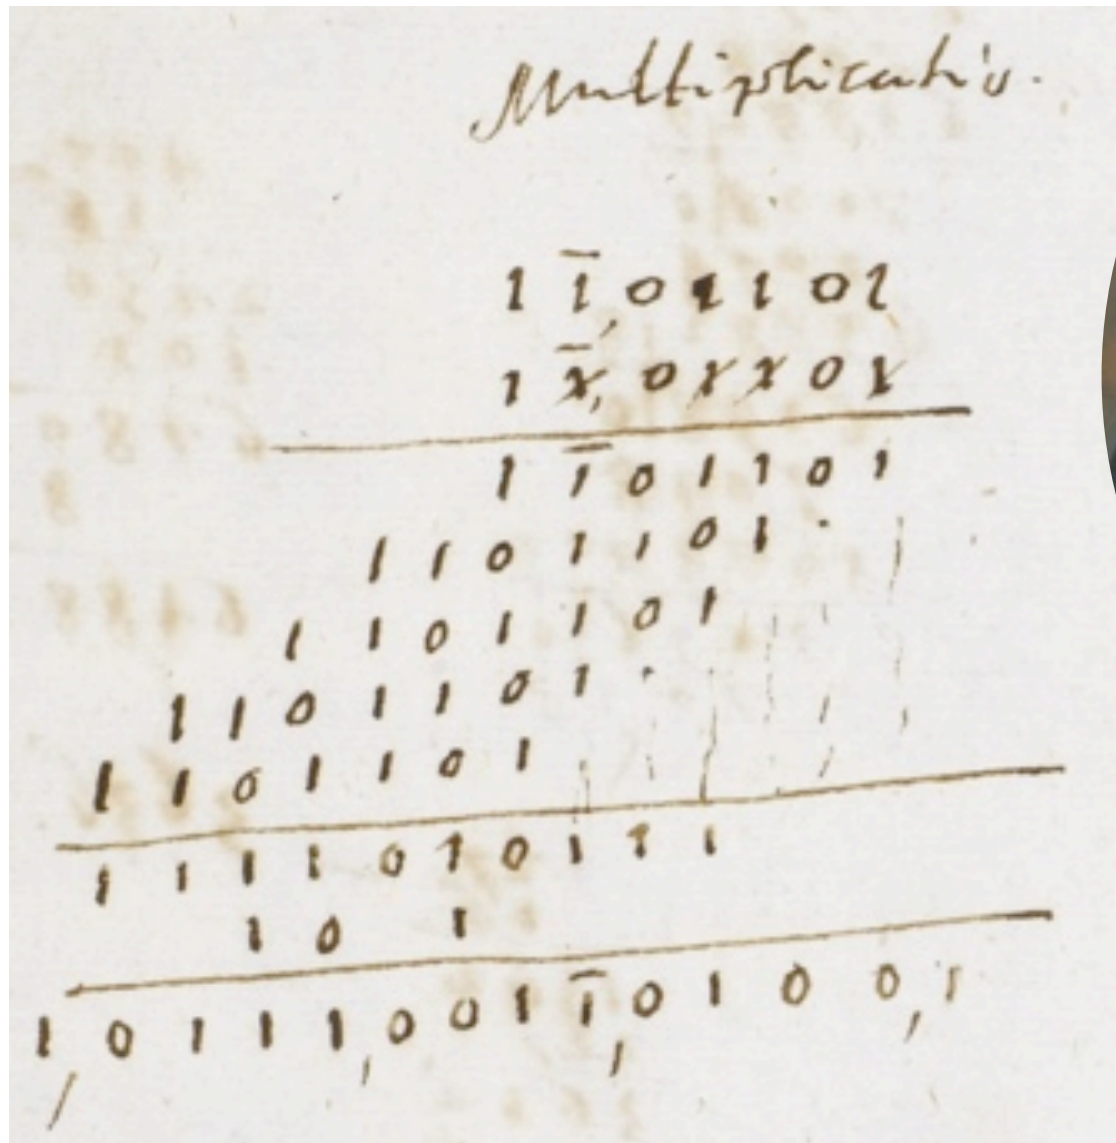 Multiplicatio.
1 1̅, 0 1 1 0 1
1 1̅, 0 1 1 0 1
1 1̅ 0 1 1 0 1
1 1 0 1 1 0 1 .
1 1 0 1 1 0 1
1 1 0 1 1 0 1 .
1 1 0 1 1 0 1
1 1 1 1 0 1 0 1 1 1
1 0 1
1, 0 1 1 1, 0 0 1 1̅, 0 1 0 0, 1